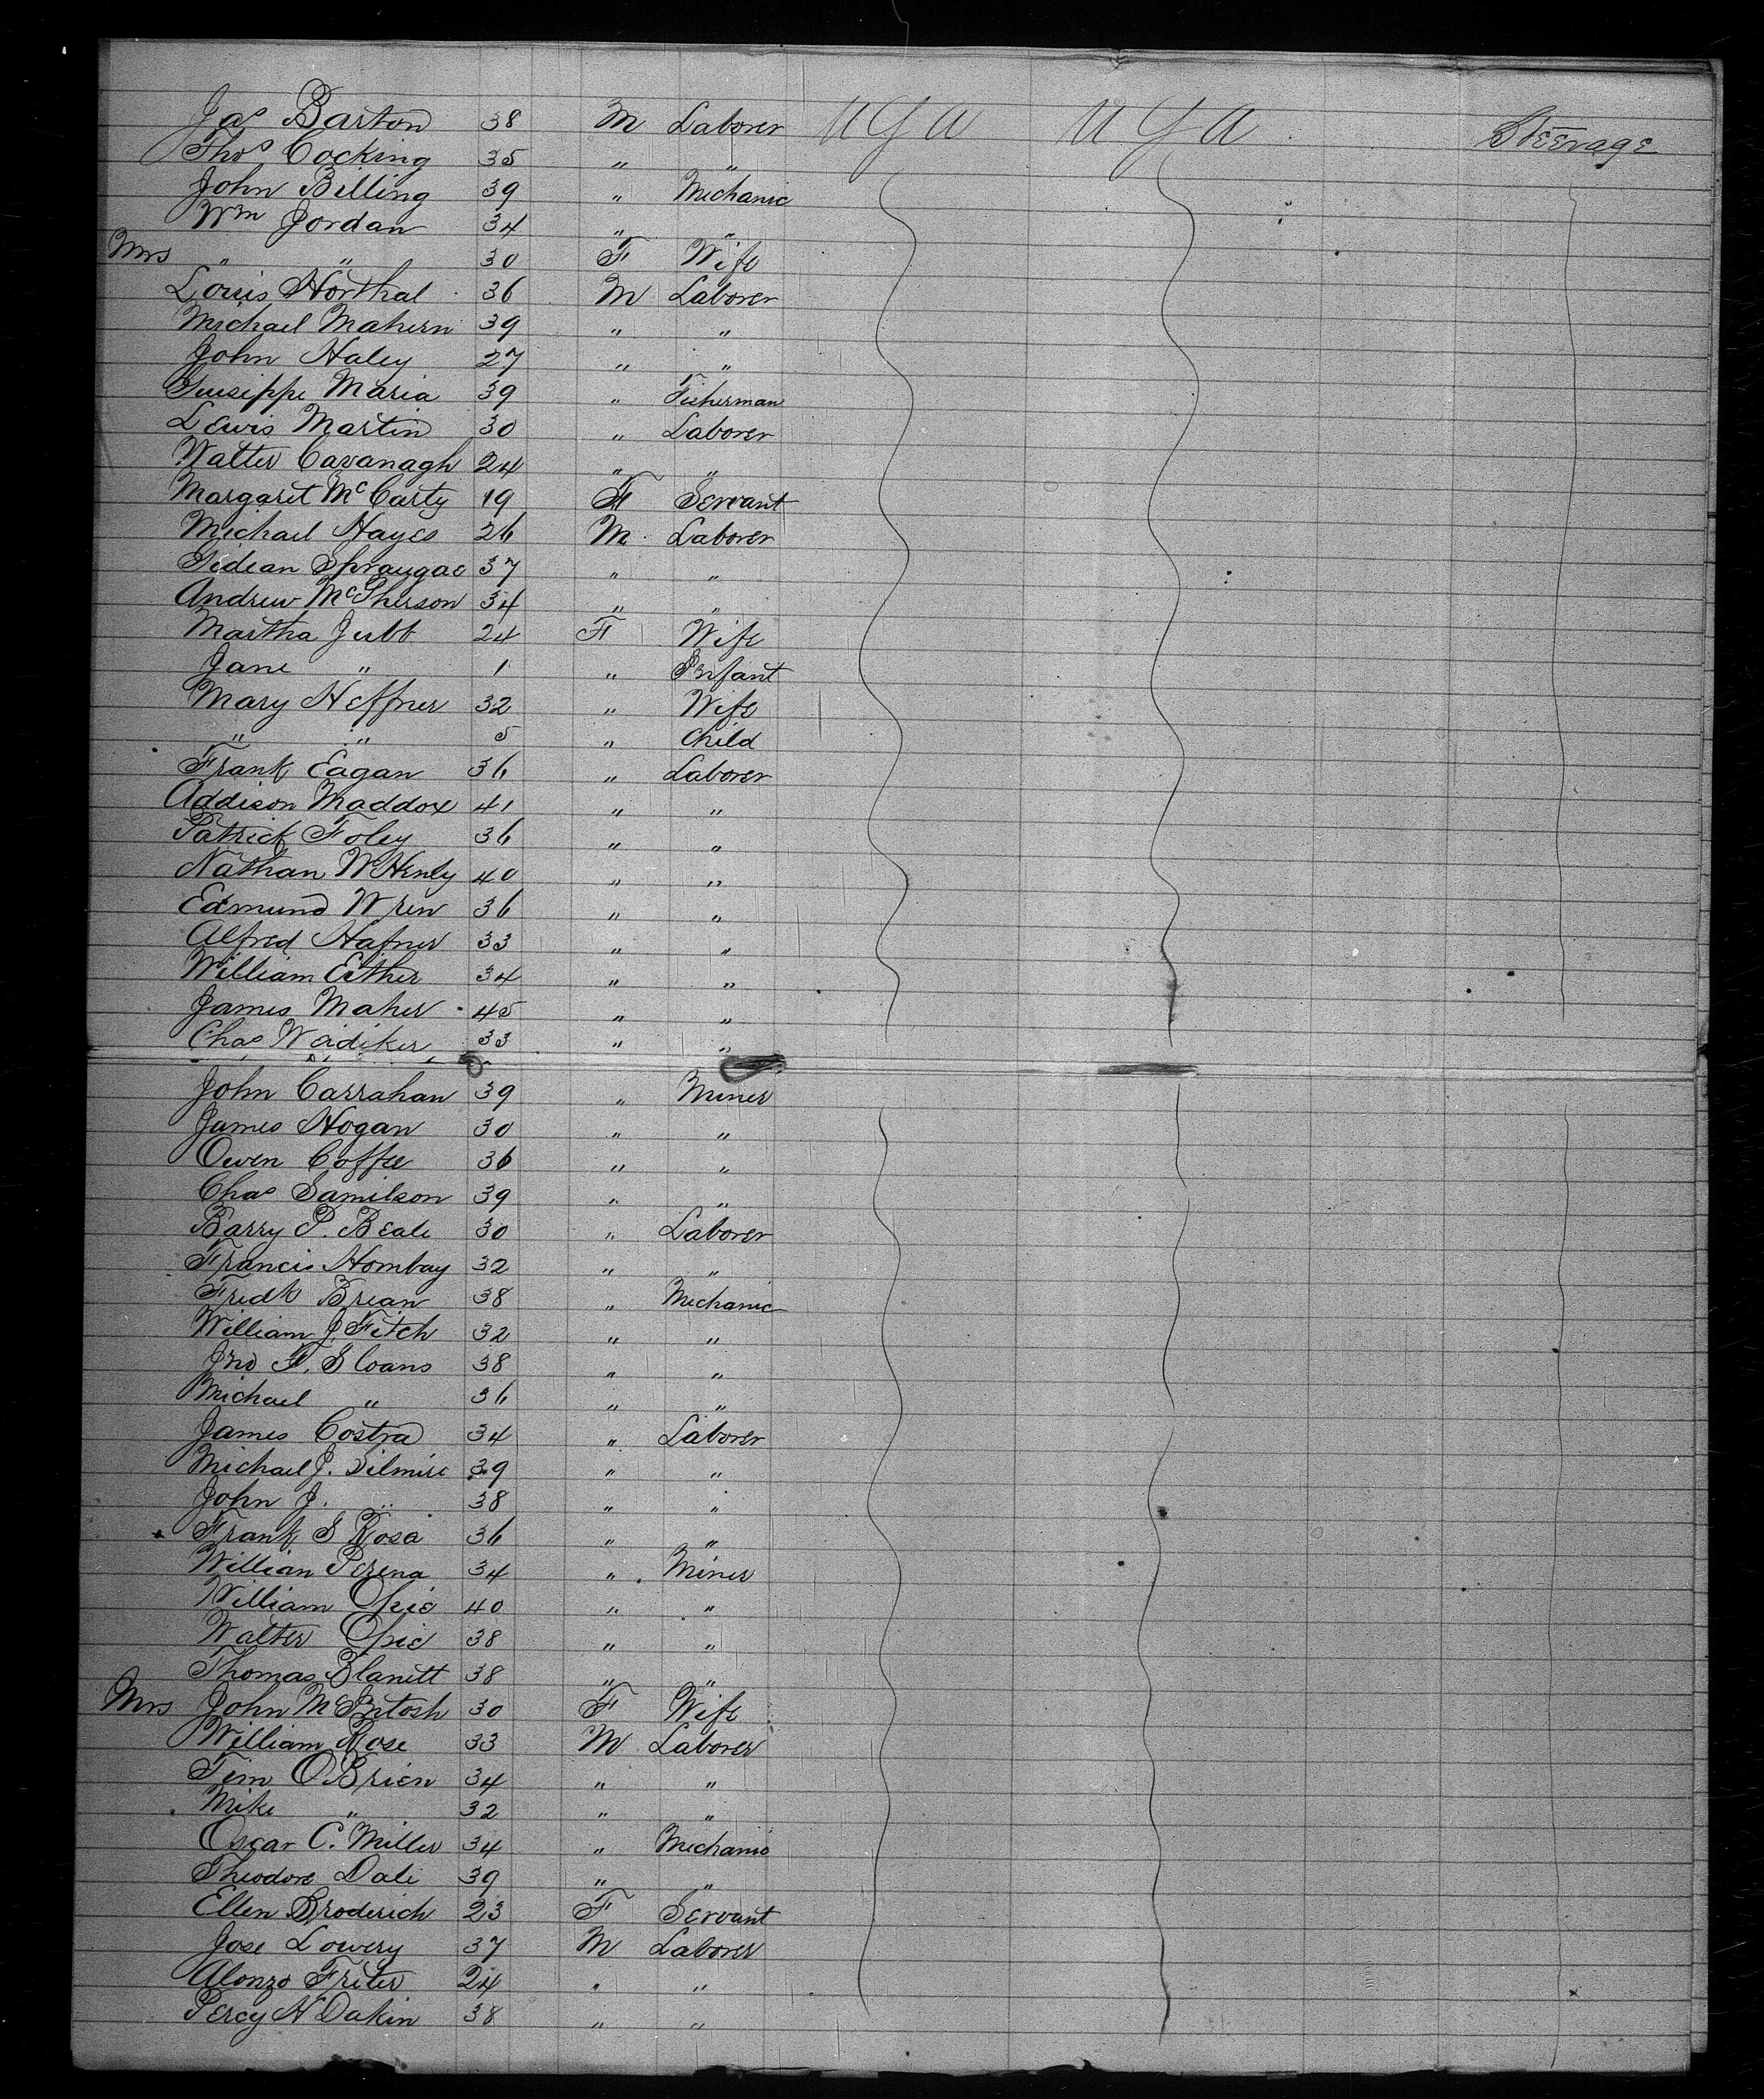 Jas Barton 38 M Laborer U S A U S A Steerage
Thos Cocking 35 " "
John Billing 39 " Mechanic
Wm Jordan 34 " "
Mrs " " 30 F Wife
Louis Northal 36 M Laborer
Michael Mahern 39 " "
John Haley 27 " "
Guiseppe Maria 39 " Fisherman
Lewis Martin 30 " Laborer
Walter Cavanagh 24 " "
Margaret McCarty 19 F Servant
Michael Hayes 26 M Laborer
Gidean 37 " "
Andrew McPherson 34 " "
Martha Jubb 24 F Wife
Jane " 1 " Infant
Mary Heffner 32 " Wife
" " 5 " Child
Frank Eagan 36 " Laborer
Addison Maddox 41 " "
Patrick Foley 36 " "
Nathan W Henly 40 " "
Edmund Wren 36 " "
Alfred Hafner 33 " "
William Esther 34 " "
James Maher 45 " "
Chas Weidiker 33 " "
John Carrahan 39 " Miner
James Hogan 30 " "
Owen Coffee 36 " "
Chas Samilson 39 " "
Barry P. Beale 30 " Laborer
Francis Hombay 32 " "
Fredk Brean 38 " Mechanic
William J. Fitch 32 " "
Jno F. Sloans 38 " "
Michael " 36 " "
James Costra 34 " Laborer
Michael J. Silmire 39 " "
John J. " 38 " "
Frank S Rosa 36 " "
William Perena 34 " Miner
William Opie 40 " "
Walter Opie 38 " "
Thomas Blanett 38 " "
Mrs John McIntosh 30 F Wife
William Rose 33 M Laborer
Tim O'Brien 34 " "
Mike " 32 " "
Oscar C. Miller 34 " Mechanic
Theodore Dale 39 " "
Ellen Broderich 23 F Servant
Jose Lowery 37 M Laborer
Alonzo Freter 24 " "
Percy N Dakin 38 " "